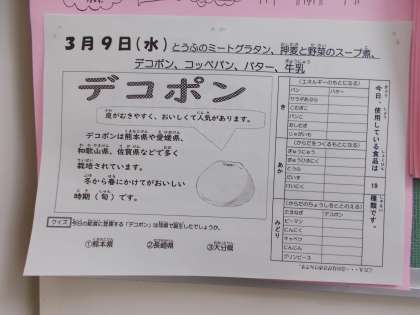 3月9日(水)とうふのミートグラタン、押麦と野菜のスープ煮、
デコポン、コッペパン、バター、牛乳
デコポン
皮がむきやすく、おいしくて人気があります。
デコポンは熊本県や愛媛県、
和歌山県、佐賀県などで多く
栽培されています。
冬から春にかけてがおいしい
時期(旬)です。
クイズ 今日の給食に登場する「デコポン」は何県で誕生したでしょうか。
①熊本県 ②長崎県 ③大分県
今日、使用している食品は
19
種類です。
き
(エネルギーのもとになる)
パン バター
サラダあぶら
こむぎこ
パンこ
おしむぎ
じゃがいも
あか
(からだをつくるもとになる)
ぎゅうにゅう
ぎゅうひきにく
とうふ
だいず
けいにく
みどり
(からだのちょうしをととのえる)
たまねぎ デコポン
ピーマン
にんじん
キャベツ
にんにく
グリンピース